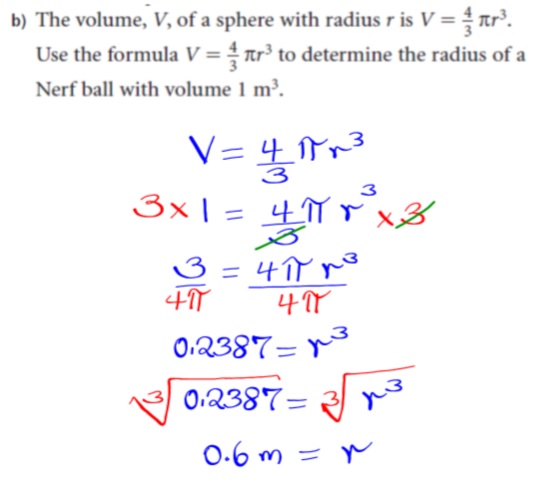 b) The volume, V, of a sphere with radius r is V = 4/3 πr³.
Use the formula V = 4/3 πr³ to determine the radius of a
Nerf ball with volume 1 m³.
V = 4/3 πr³
3 × 1 = 4πr³/3 × 3
3/4π = 4πr³/4π
0.2387 = r³
∛0.2387 = ∛r³
0.6 m = r